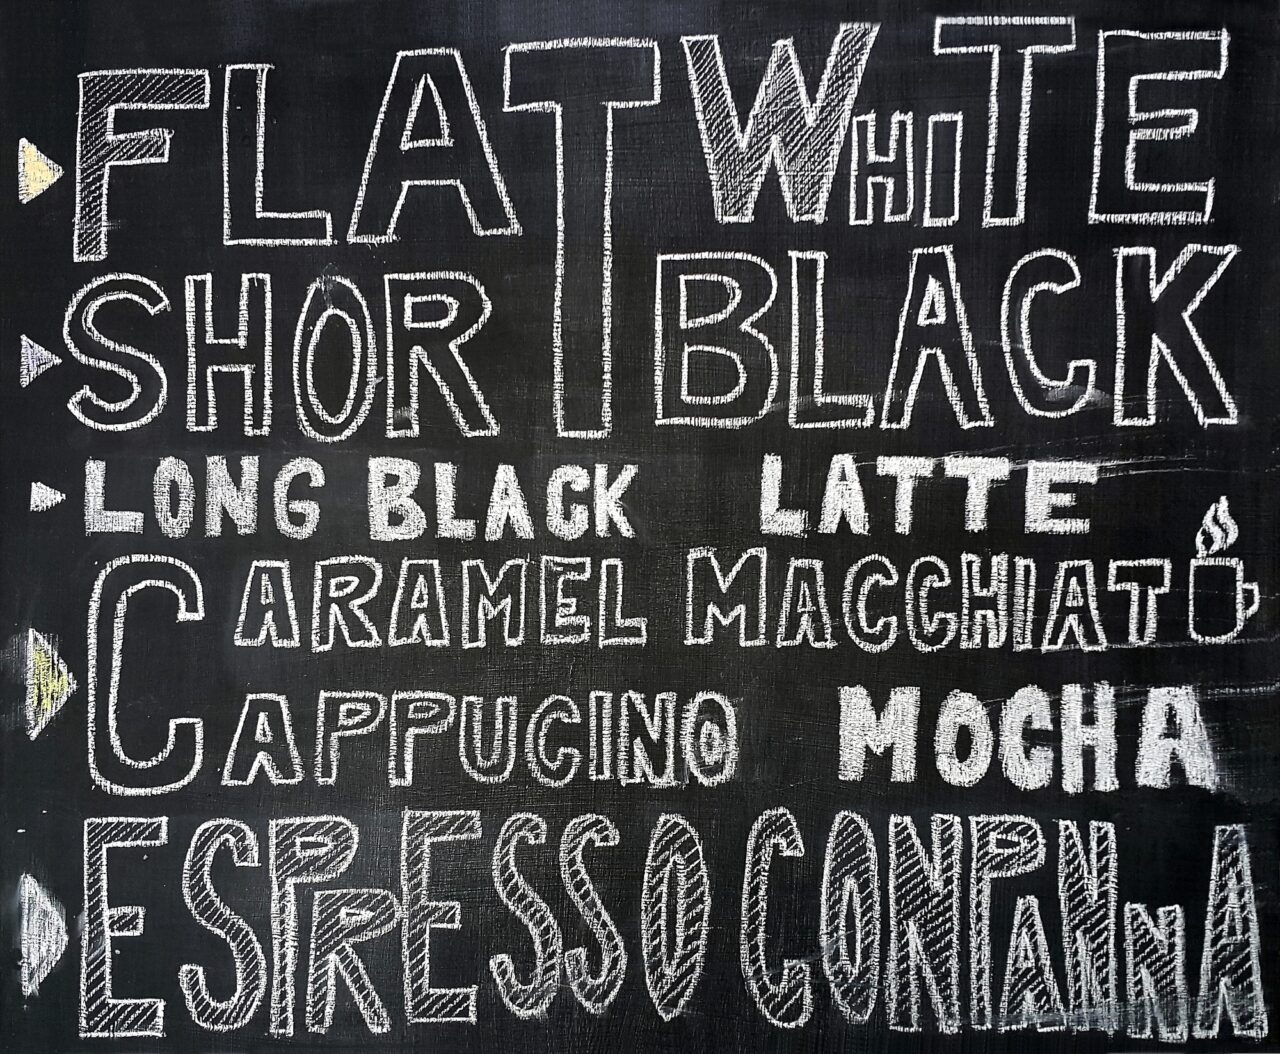 FLAT WHITE
SHORT BLACK
LONG BLACK LATTE
CARAMEL MACCHIAT
CAPPUCINO MOCHA
ESPRESSO CONPANNA